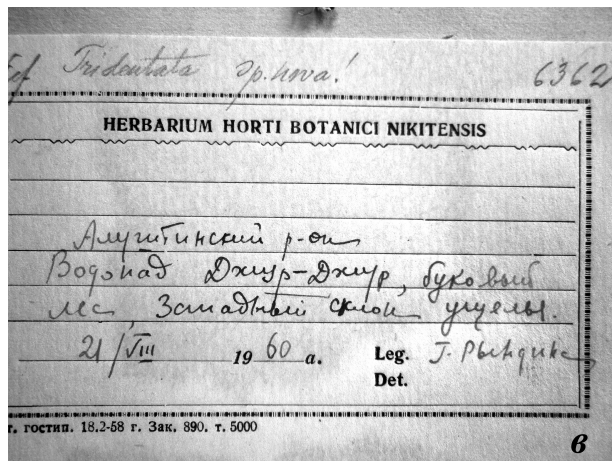 Tridentata sp. nova! 6362
HERBARIUM HORTI BOTANICI NIKITENSIS
Алуштинский р-он
Водопад Джур-Джур, буковый
лес, Западный склон ущелья.
21/VIII 1960 a. Leg. Г. Рындина
Det.
г. гостип. 18.2-58 г. Зак. 890. т. 5000
в